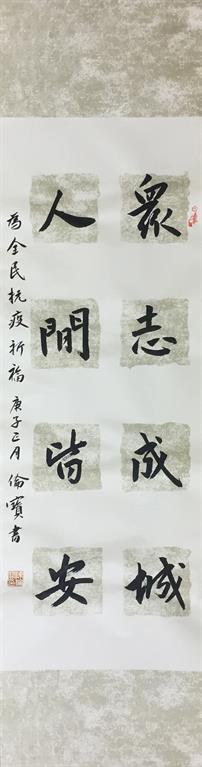 衆志成城
人間皆安
為全民抗疫祈福 庚子正月 倫寶書